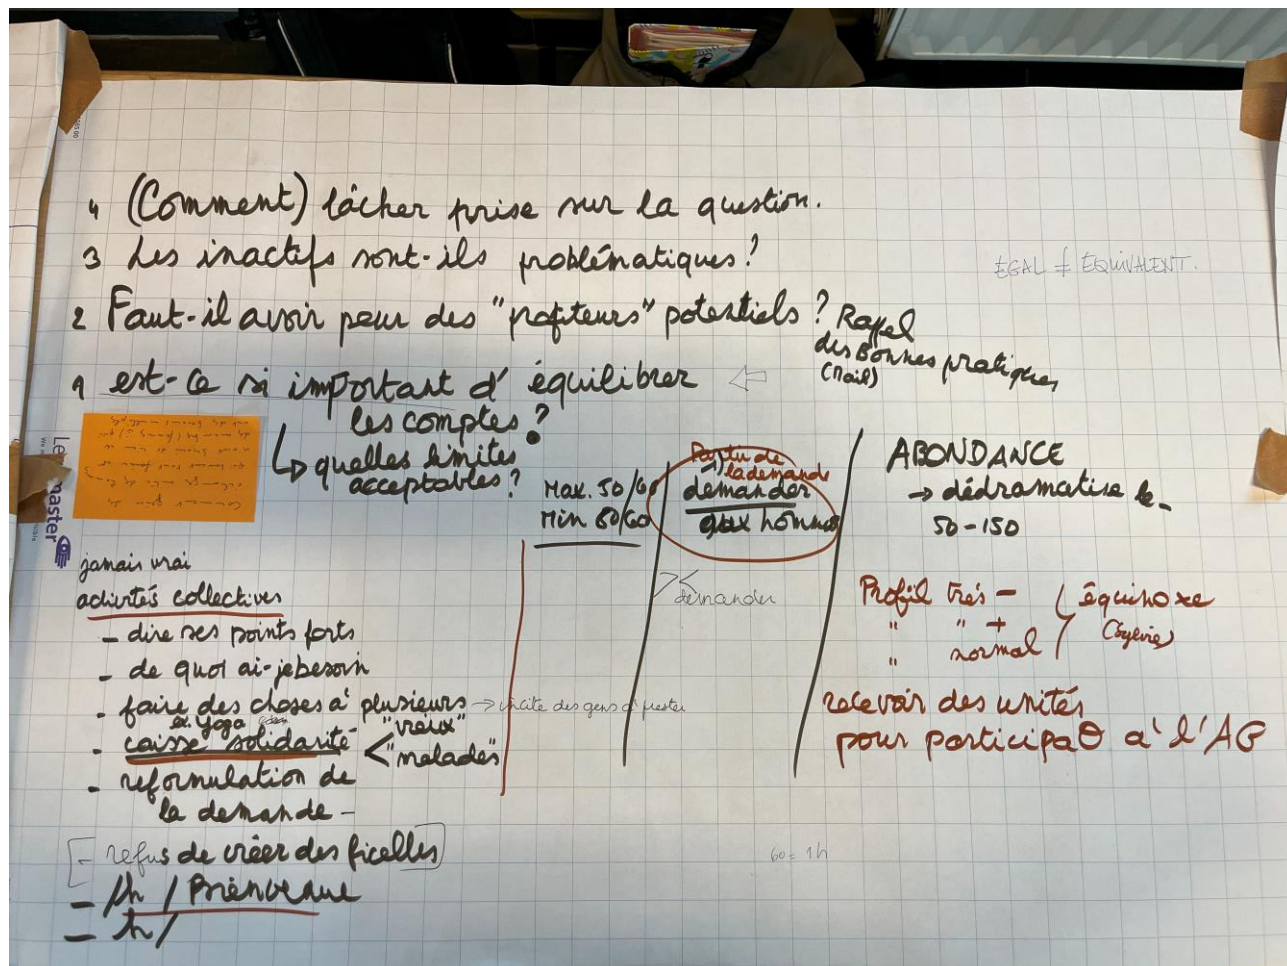 4 (Comment) lâcher prise sur la question.
3 Les inactifs sont-ils problématiques?
EGAL ≠ ÉQUIVALENT.
2 Faut-il avoir peur des "profiteurs" potentiels?
Rappel
des Bonnes pratiques
(Mail)
1 est-ce si important d'équilibrer
les comptes?
↳ quelles limites
acceptables?
Max. 50/60
Min 60/60
Partir de
la demande
demander
aux hommes
demander
ABONDANCE
→ dédramatise le
50-150
Profil très -
" " +
" normal
équinoxe
(Sylvie)
recevoir des unités
pour participaθ à l'AG
jamais vrai
activités collectives
- dire ses points forts
- de quoi ai-je besoin
- faire des choses à plusieurs → incite des gens à prester
ex. yoga
- caisse solidarité < "vieux"
"malades"
- reformulation de
la demande -
[- refus de créer des ficelles]
- /h / Bienvenue
- h/
60 = 1h
master